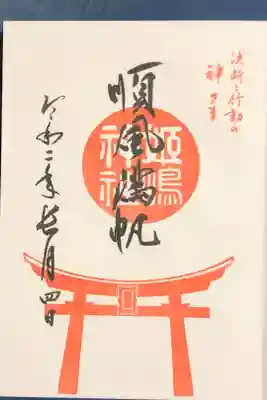 決断と行動の
神さま
順風満帆
姫嶋
神社
令和二年長月四日